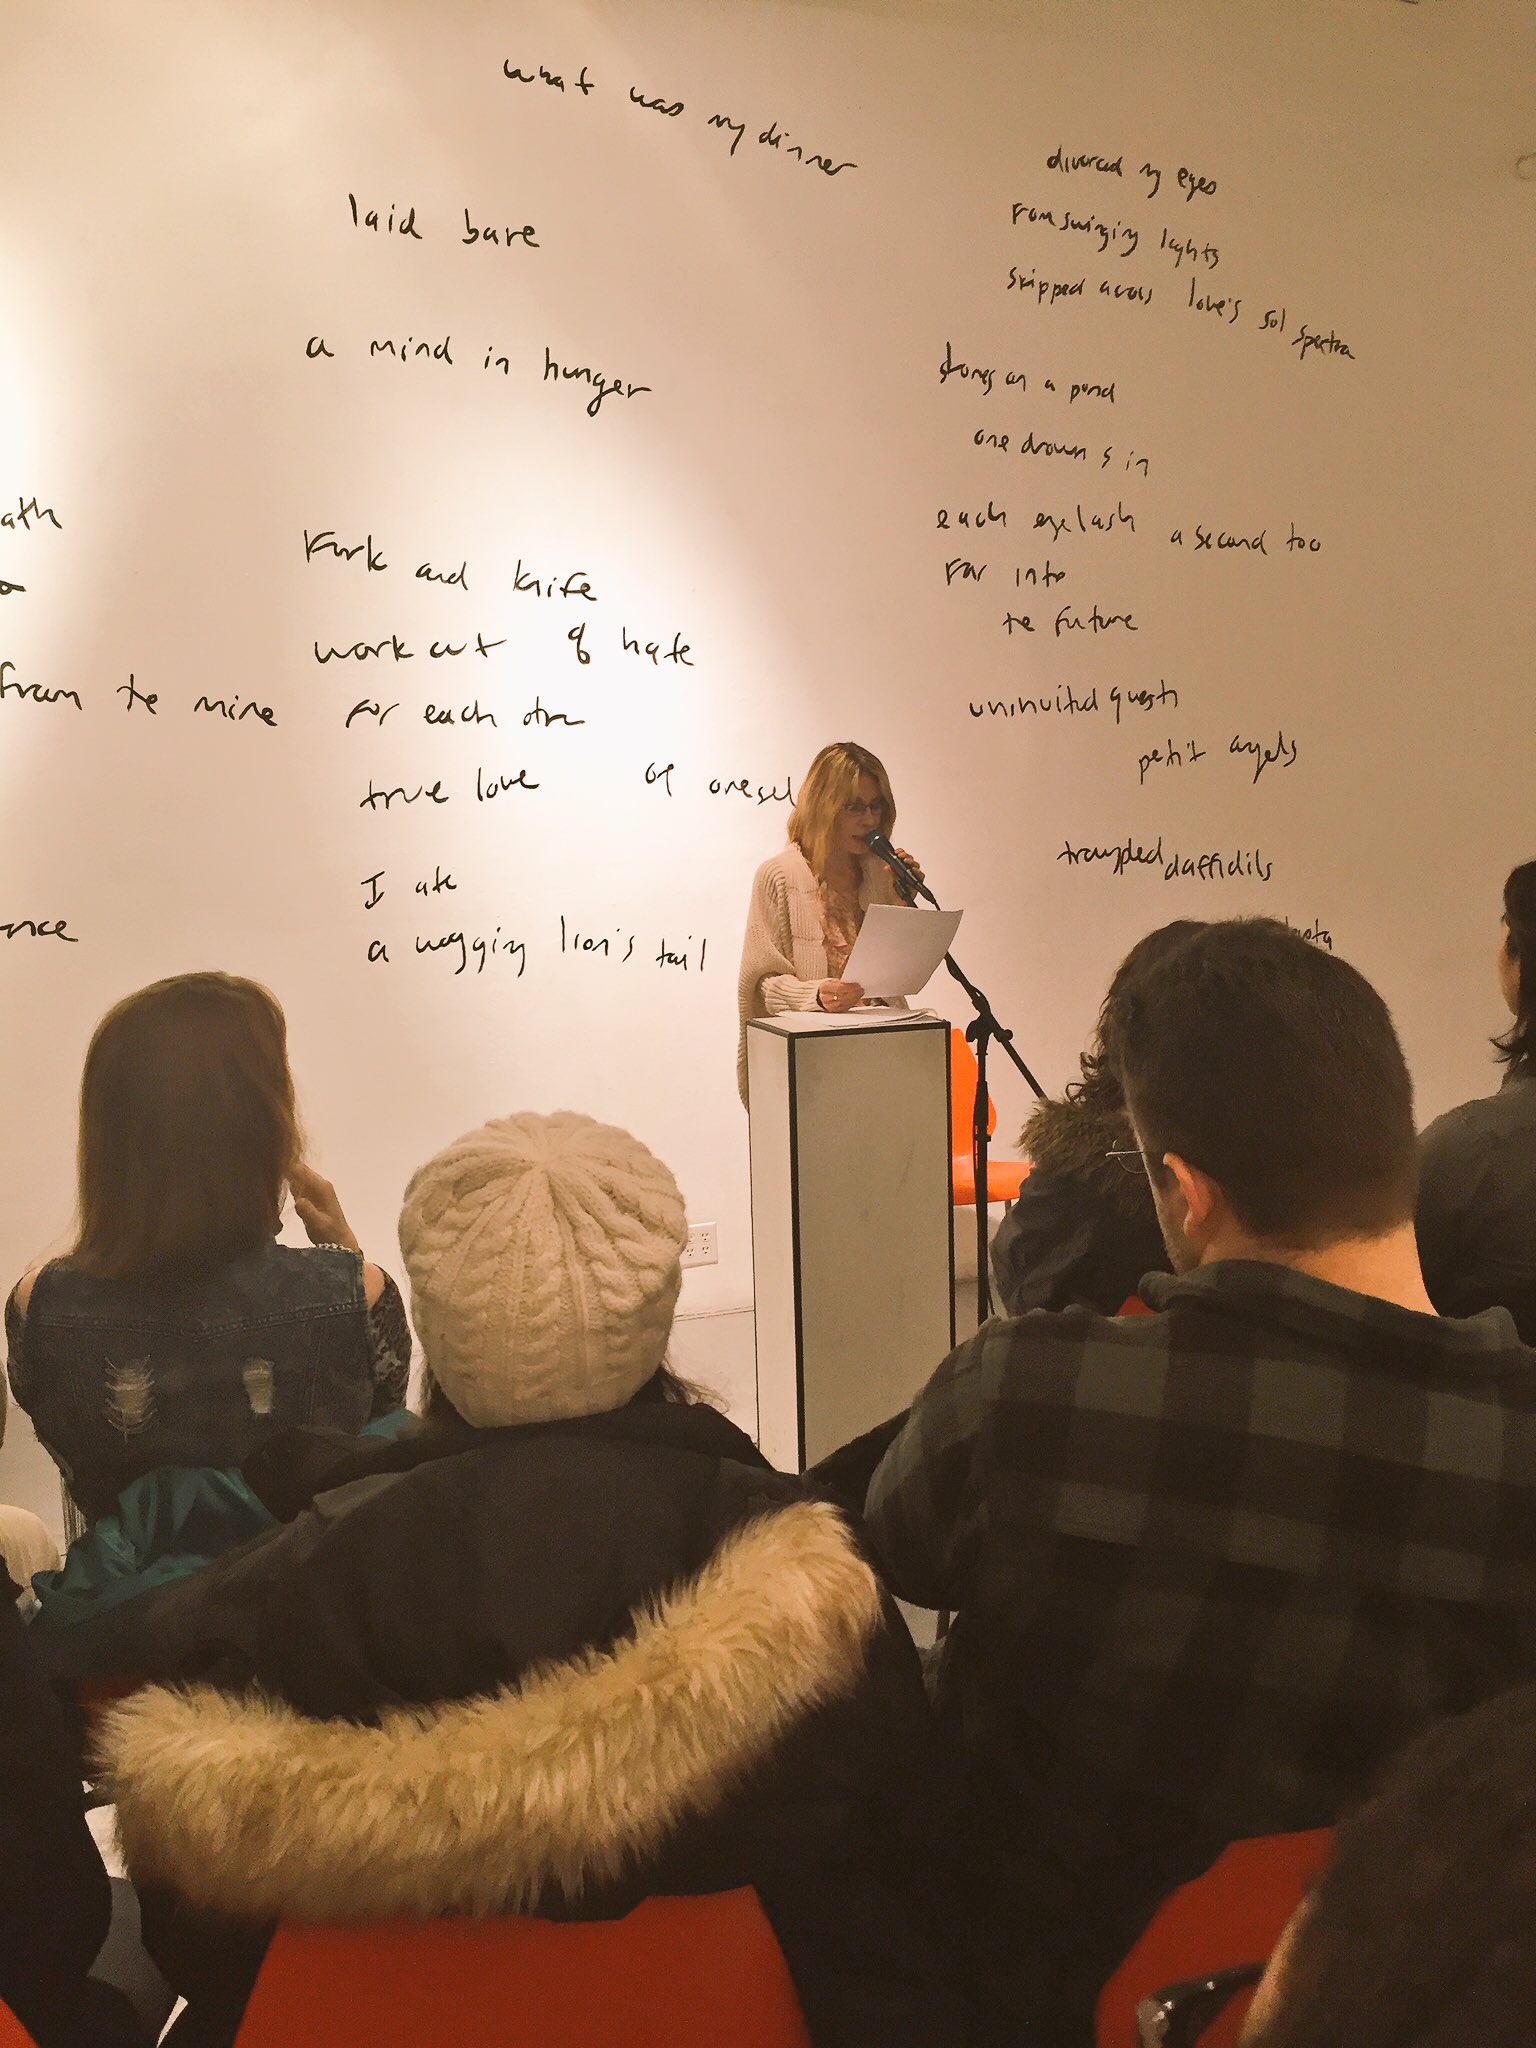 what was my dinner
laid bare
a mind in hunger
Fork and knife
work out of hate
for each other
true love of onesel
I ate
a wagging lion's tail
ath
a
from the mine
ance
divorced my eyes
From swinging lights
skipped across love's sol spectra
stones on a pond
one drowns in
each eyelash a second too
Far into
te future
uninvited guests
petit angels
trampled daffidils